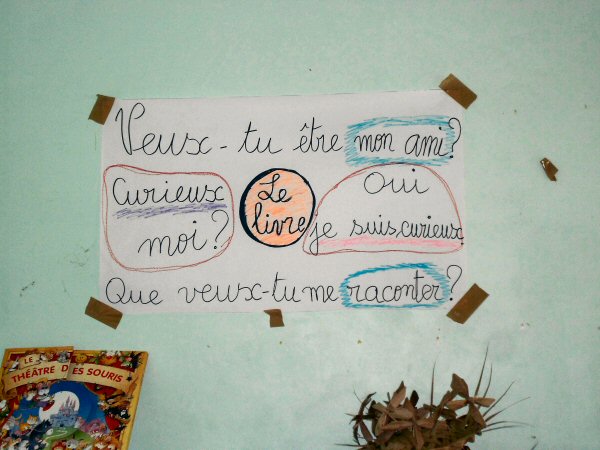 Veux-tu être mon ami?
Curieux
moi?
Le
livre
Oui
je suis curieux
Que veux-tu me raconter?
LE
THÉÂTRE DES SOURIS